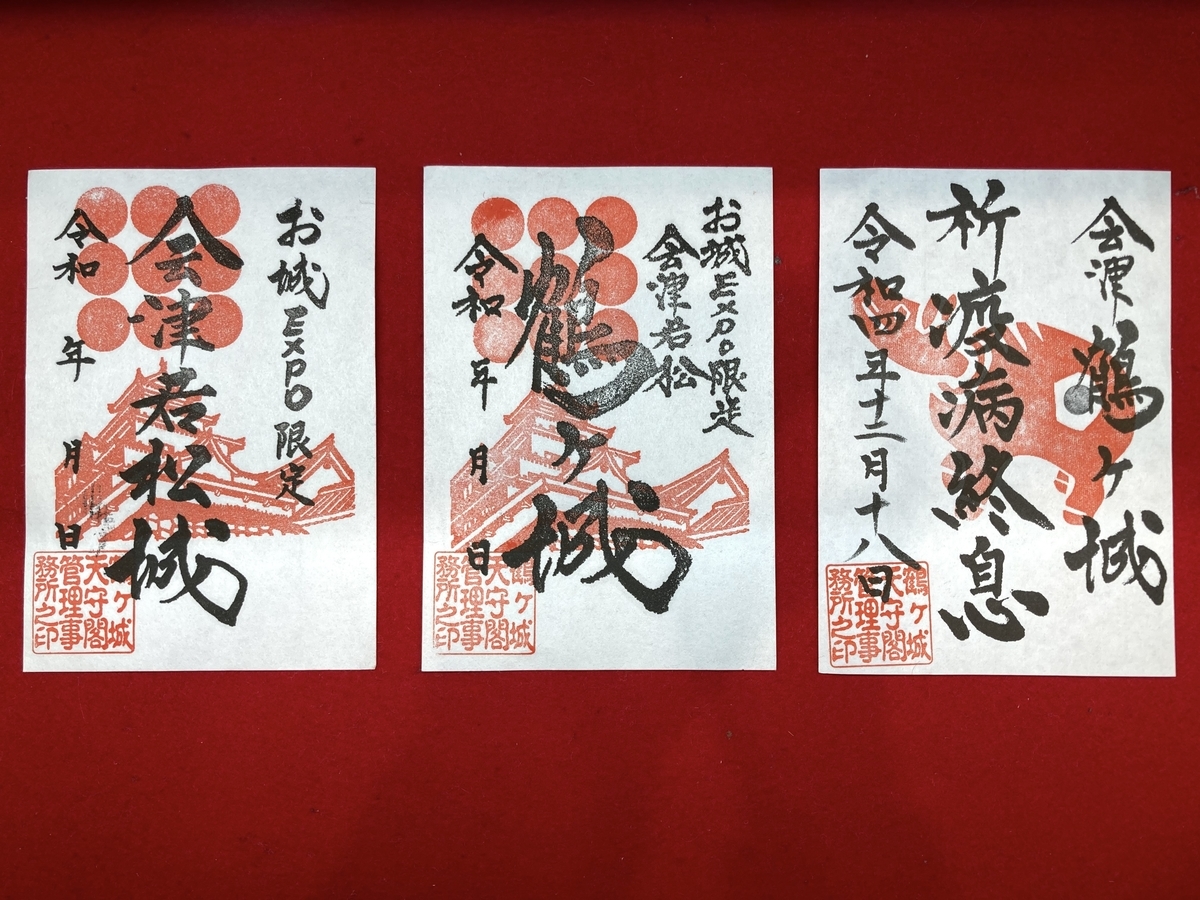 お城EXPO限定
会津若松城
令和 年 月 日
鶴ヶ城
天守閣
管理事
務所之印
お城EXPO限定
会津若松
鶴ヶ城
令和 年 月 日
鶴ヶ城
天守閣
管理事
務所之印
会津鶴ヶ城
祈疫病終息
令和四年十二月十八日
鶴ヶ城
天守閣
管理事
務所之印